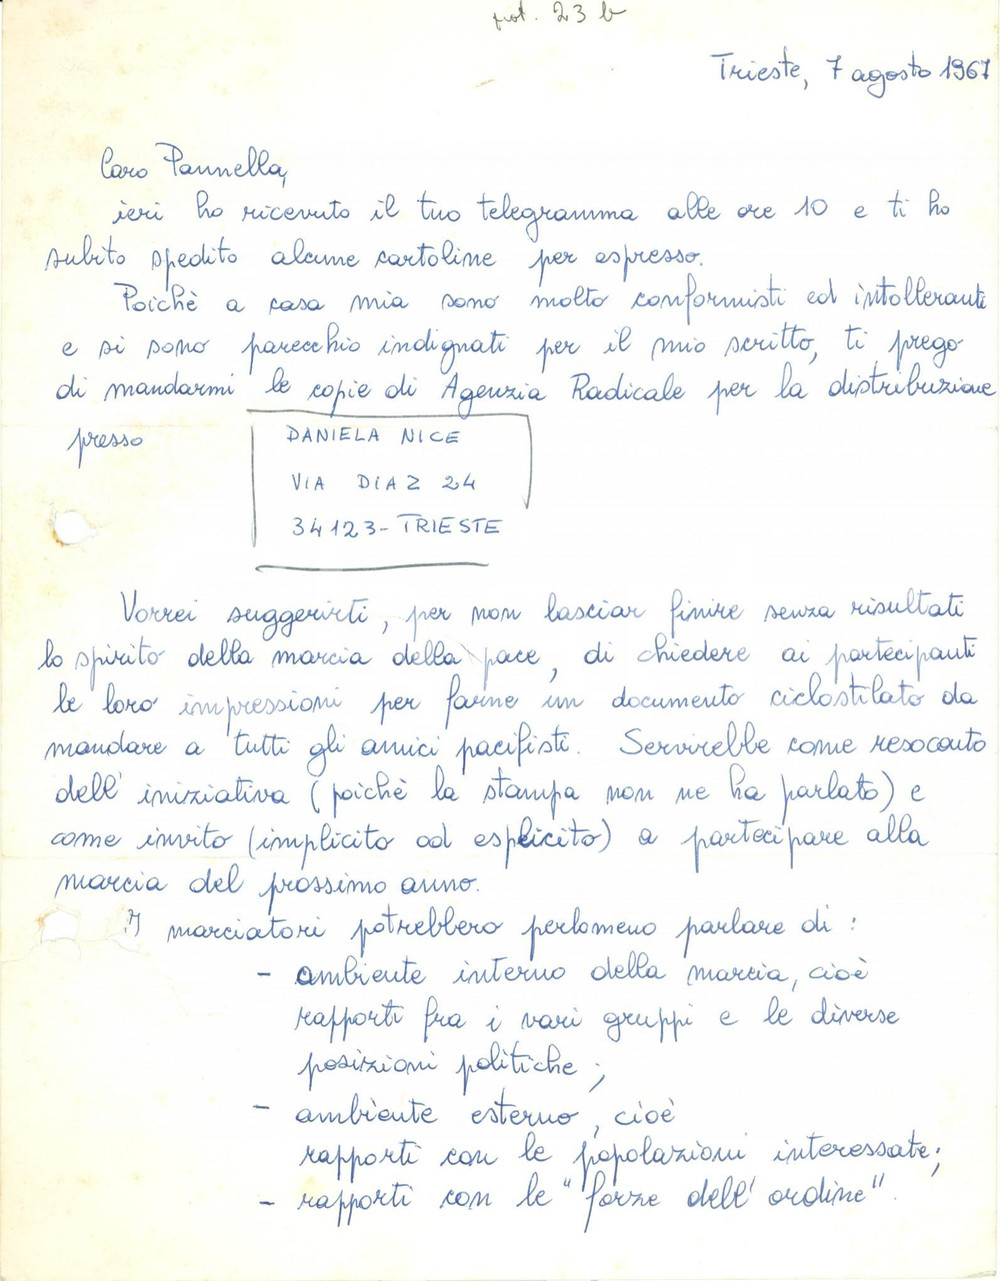 prot. 23 b
Trieste, 7 agosto 1967
Caro Pannella,
ieri ho ricevuto il tuo telegramma alle ore 10 e ti ho
subito spedito alcune cartoline per espresso.
Poichè a casa mia sono molto conformisti ed intolleranti
e si sono parecchio indignati per il mio scritto, ti prego
di mandarmi le copie di Agenzia Radicale per la distribuzione
presso
DANIELA NICE
VIA DIAZ 24
34123-TRIESTE
Vorrei suggerirti, per non lasciar finire senza risultati
lo spirito della marcia della pace, di chiedere ai partecipanti
le loro impressioni per farne un documento ciclostilato da
mandare a tutti gli amici pacifisti. Servirebbe come resoconto
dell'iniziativa (poichè la stampa non ne ha parlato) e
come invito (implicito od esplicito) a partecipare alla
marcia del prossimo anno.
I marciatori potrebbero perlomeno parlare di:
- ambiente interno della marcia, cioè
rapporti fra i vari gruppi e le diverse
posizioni politiche;
- ambiente esterno, cioè
rapporti con le popolazioni interessate;
- rapporti con le "forze dell'ordine".